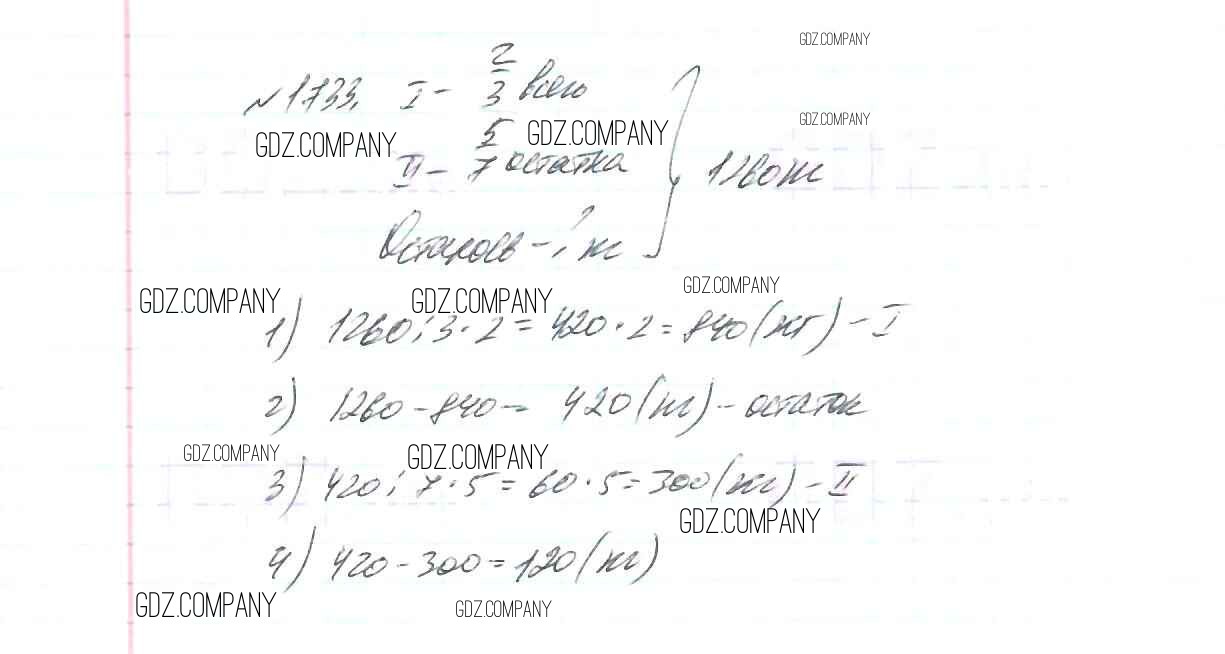 GDZ.COMPANY
№1733. I - 2/3 всего
GDZ.COMPANY
GDZ.COMPANY GDZ.COMPANY
II - 5/7 остатка } 1260 кг
Осталось - ? кг
GDZ.COMPANY
GDZ.COMPANY GDZ.COMPANY
1) 1260 : 3 · 2 = 420 · 2 = 840 (кг) - I
2) 1260 - 840 = 420 (кг) - остаток
GDZ.COMPANY GDZ.COMPANY
3) 420 : 7 · 5 = 60 · 5 = 300 (кг) - II
GDZ.COMPANY
4) 420 - 300 = 120 (кг)
GDZ.COMPANY GDZ.COMPANY